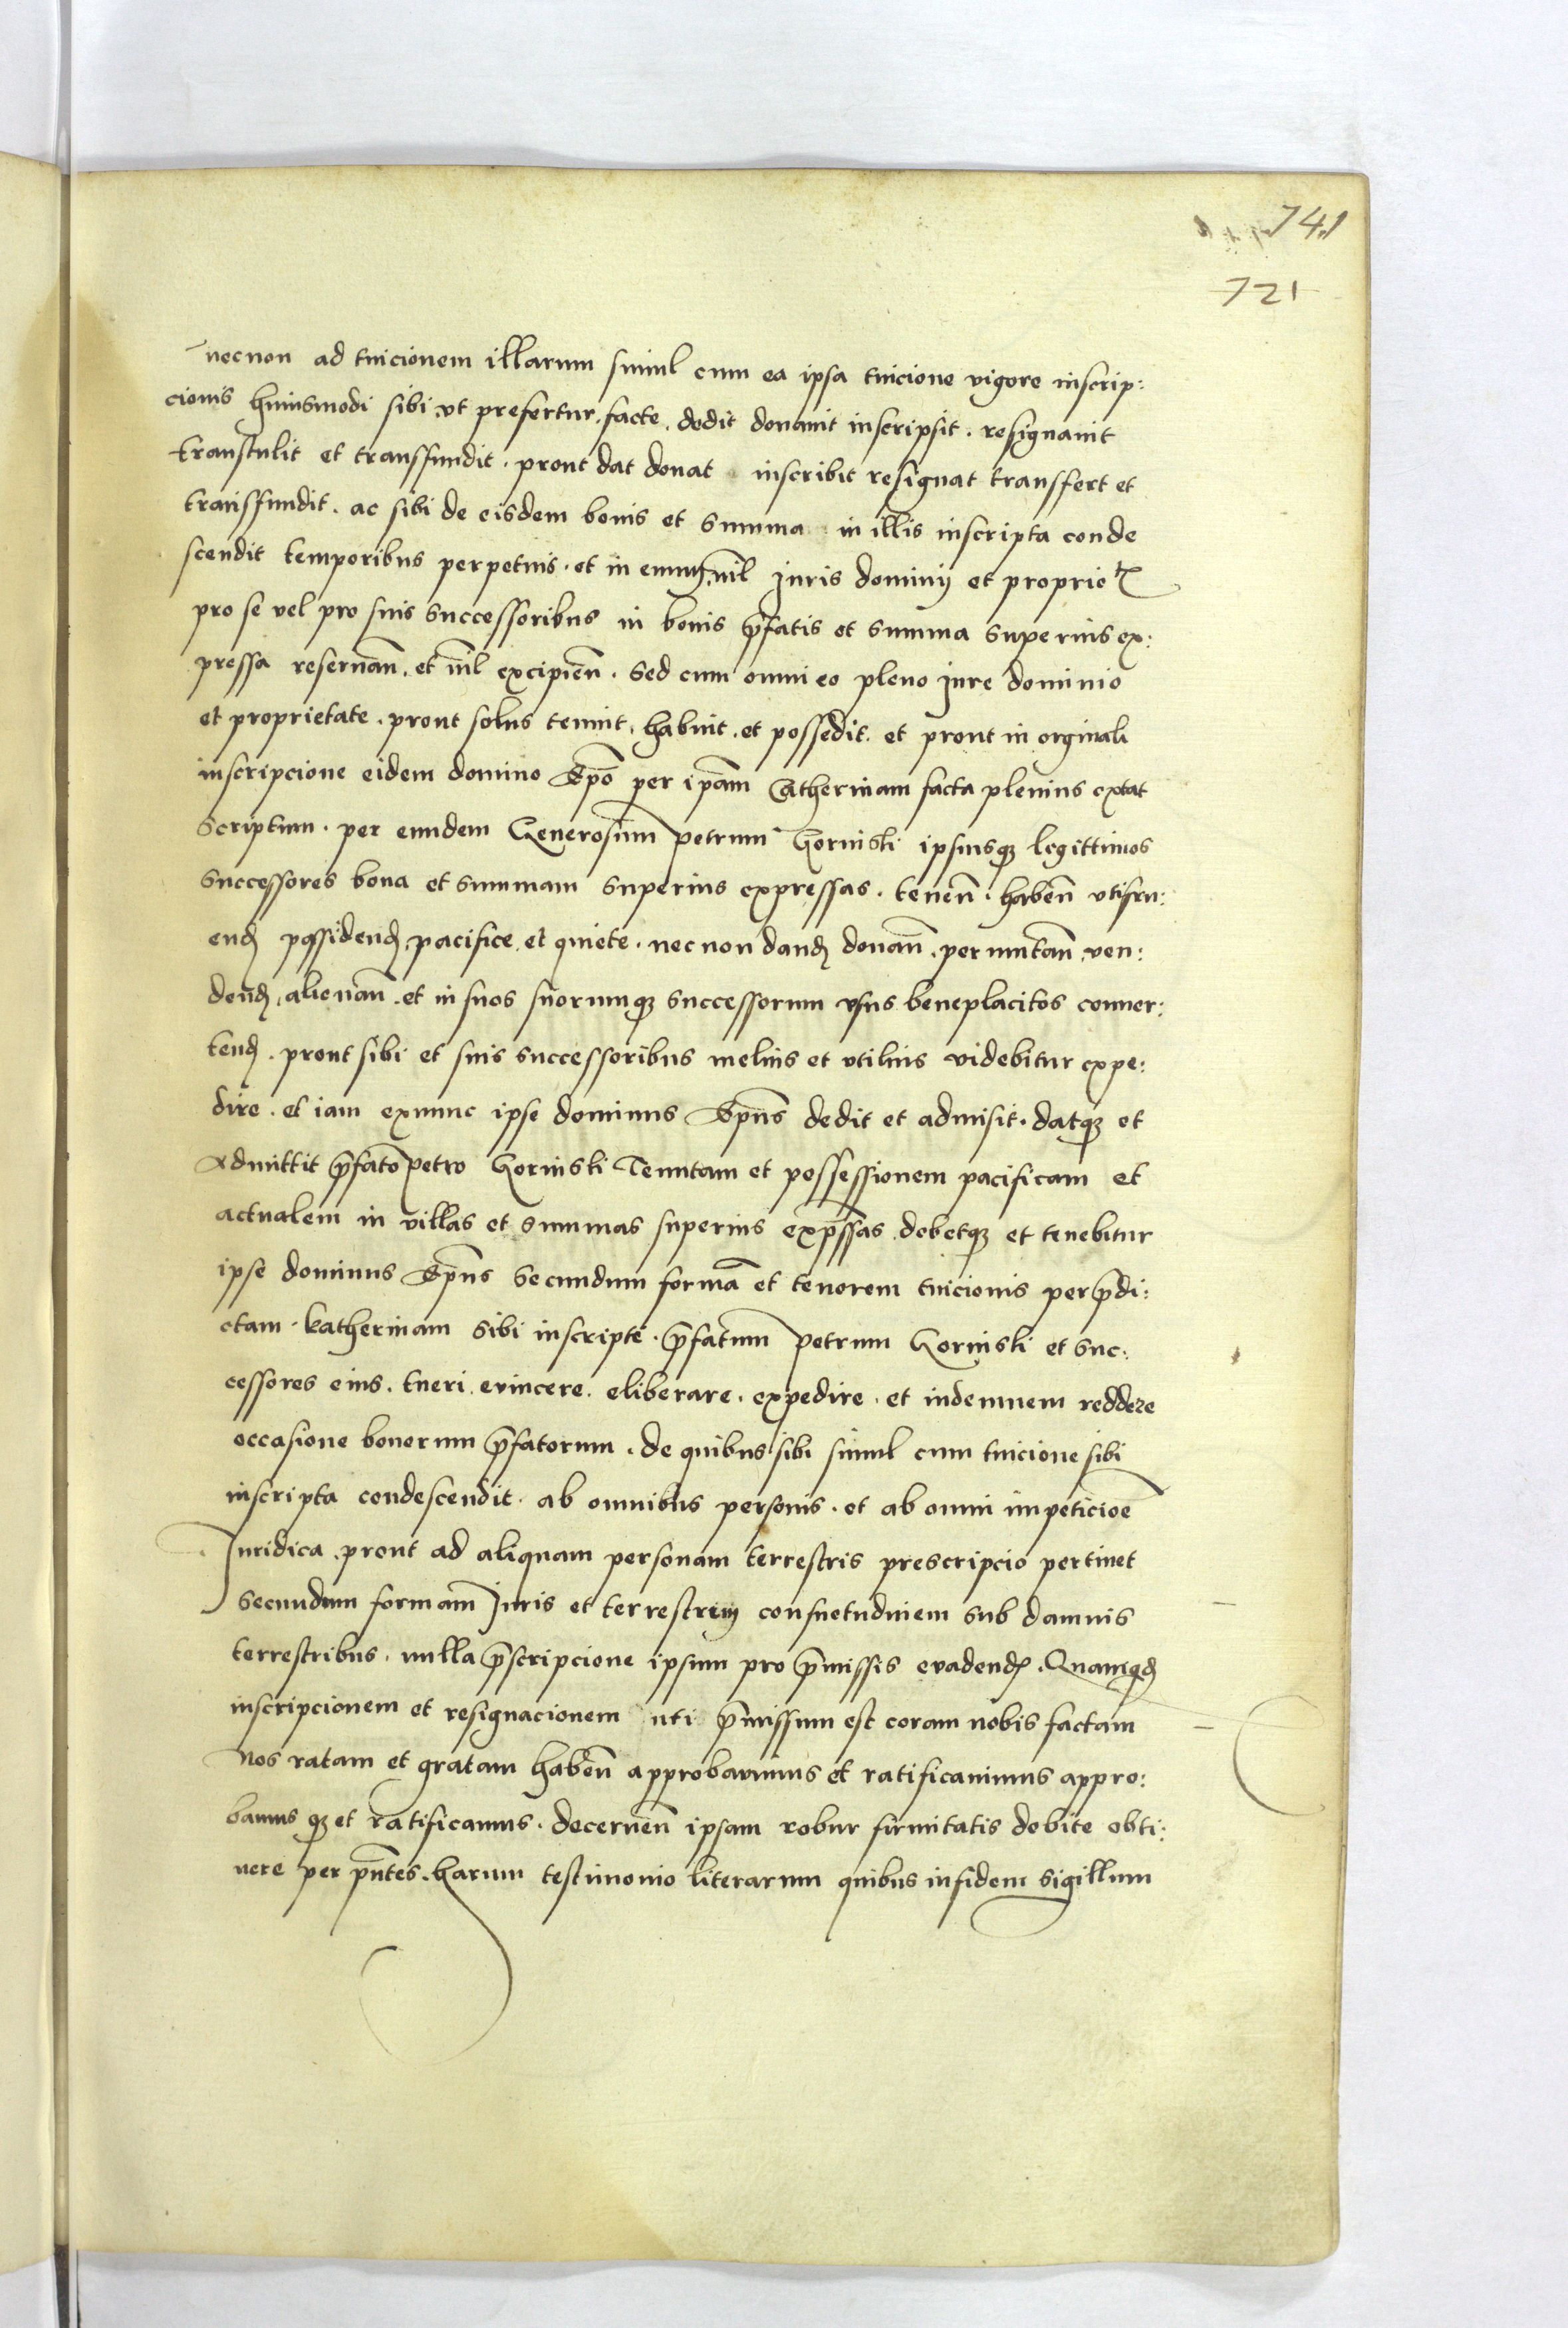 741
721
necnon ad tuicionem illarum simul cum ea ipsa tuicione vigore inscrip:
cionis huiusmodi sibi vt prefertur. facte. dedit donauit inscripsit. resignauit
transtulit et transffundit. prout dat donat inscribit resignat transffert et
transffundit. ac sibi de eisdem bonis et summa in illis inscripta conde
scendit temporibus perpetuis. et in euum. nil Juris dominij et propriet
pro se vel pro suis successoribus in bonis p̄fatis et summa superius ex:
pressa reseruan̄. et nil excipien̄. Sed cum omni eo pleno Jure dominio
et proprietate. prout solus tenuit. habuit. et possedit. et prout in orginali
inscripcione eidem domino Ep̄o per ip̄am Catherinam facta plenius extat
Scriptum. per eundem Generosum Petrum Gorinski ipsiusqȝ legittimos
Successores bona et summam superius expressas. tenen̄. haben̄ vtifru:
end̄ possidend̄ pacifice et quiete. necnon dand̄ donan̄. permutan̄ ven:
dend̄, alienan̄. et in suos suorumqȝ successorum vsus beneplacitos conuer:
tend̄. prout sibi et suis successoribus melius et vtilius videbitur expe:
dire. et iam exnunc ipse dominus Ep̄us dedit et admisit. datqȝ et
Admittit p̄fato petro Gorinski Tenutam et possessionem pacificam et
actualem in villas et summas superius exp̄ssas debetqȝ et tenebitur
ipse dominus Ep̄us secundum formā et tenorem tuicionis per p̄di:
ctam. katherinam sibi inscripte. p̄fatum Petrum Gorinski et suc:
cessores eius. tueri evincere. eliberare. expedire. et indemnem reddere
occasione bonorum p̄fatorum. de quibus sibi simul cum tuicione sibi
inscripta condescendit. ab omnibus personis. et ab omni impeticioē
Juridica. prout ad aliquam personam terrestris prescripcio pertinet
Secundum formam Juris et terrestrem consuetudinem sub damnis
terrestribus. nulla p̄scripcione ipsum pro p̄missis evadend̄. Quamq̄d̄
inscripcionem et resignacionem uti p̄missum est coram nobis factam
Nos ratam et gratam haben̄ approbauimus et ratificauimus appro:
bamus qȝ et ratificamus. decernen̄ ipsam robur firmitatis debite obti:
nere per p̄ntes. harum testimonio literarum quibus in fidem sigillum